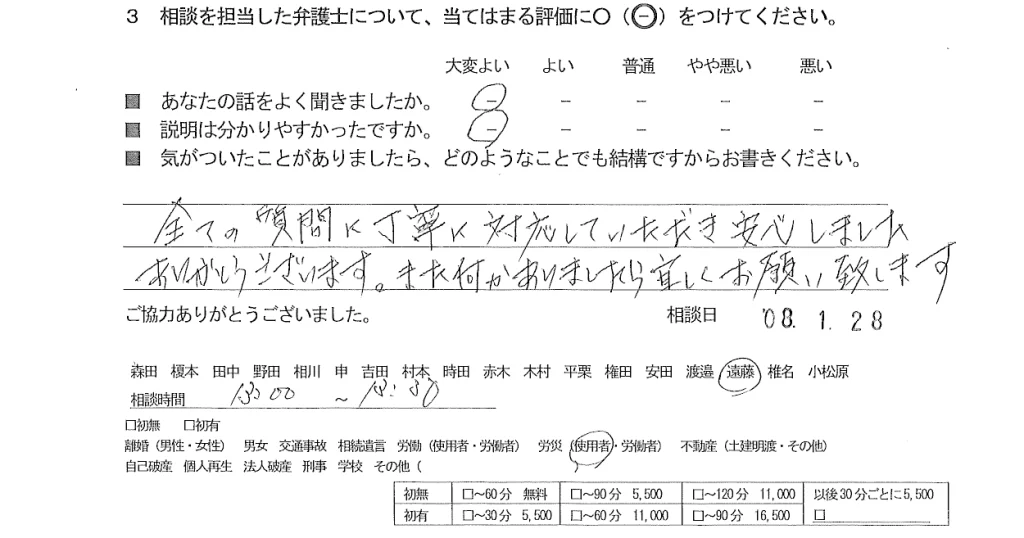 3 相談を担当した弁護士について、当てはまる評価に○(⊖)をつけてください。
大変よい よい 普通 やや悪い 悪い
■ あなたの話をよく聞きましたか。 − − − − −
■ 説明は分かりやすかったですか。 − − − − −
■ 気がついたことがありましたら、どのようなことでも結構ですからお書きください。
全ての質問に丁寧に対応していただき安心しました
ありがとうございます。また何かありましたら宜しくお願い致します
ご協力ありがとうございました。 相談日 '08. 1. 28
森田 榎本 田中 野田 相川 申 吉田 村本 時田 赤木 木村 平栗 権田 安田 渡邉 遠藤 椎名 小松原
相談時間 13:00 ~ 13:30
□初無 □初有
離婚(男性・女性) 男女 交通事故 相続遺言 労働(使用者・労働者) 労災(使用者・労働者) 不動産(土建明渡・その他)
自己破産 個人再生 法人破産 刑事 学校 その他(
初無 □~60分 無料 □~90分 5,500 □~120分 11,000 以後30分ごとに5,500
初有 □~30分 5,500 □~60分 11,000 □~90分 16,500 □